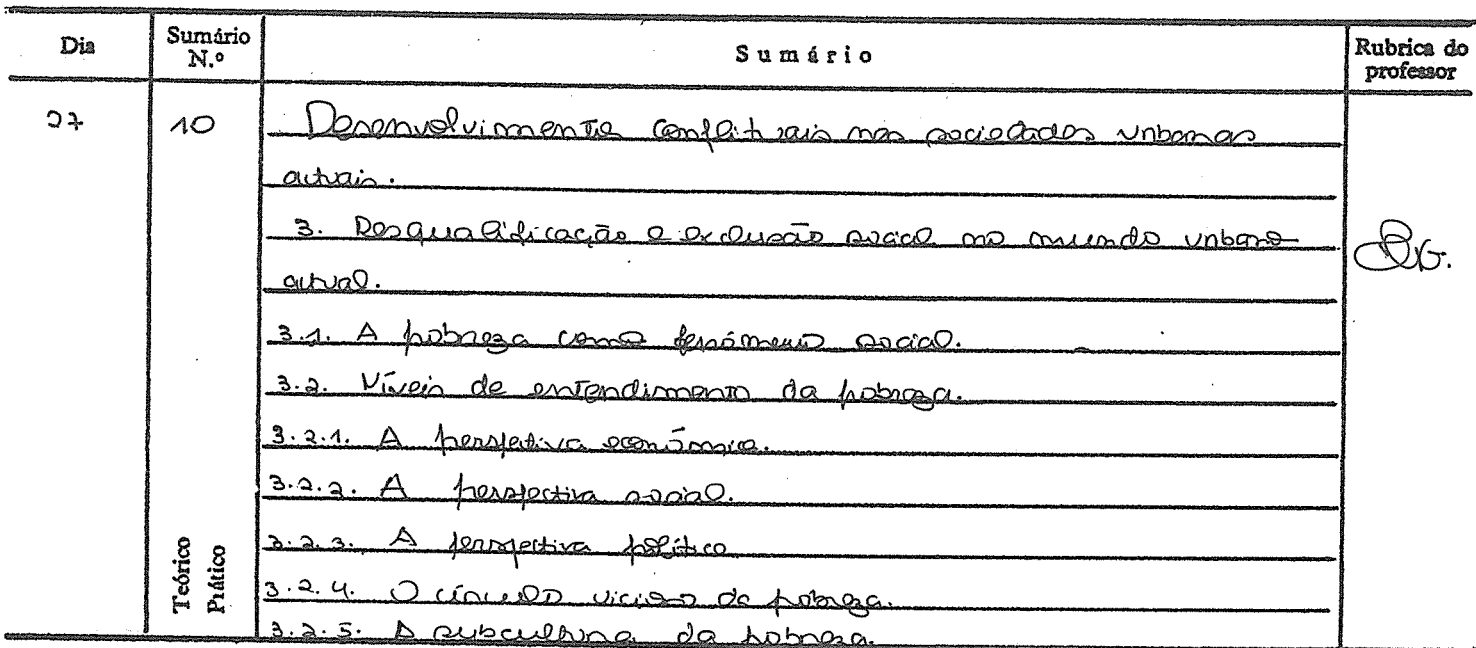 Dia Sumário N.º Sumário Rubrica do professor
27 10 Desenvolvimentos conflituais nas sociedades urbanas
actuais.
3. Desqualificação e exclusão social no mundo urbano
actual.
3.1. A pobreza como fenómeno social.
3.2. Níveis de entendimento da pobreza.
3.2.1. A perspectiva económica.
3.2.2. A perspectiva social.
3.2.3. A perspectiva política
3.2.4. O círculo vicioso da pobreza.
3.2.5. A subcultura da pobreza.
Teórico
Prático